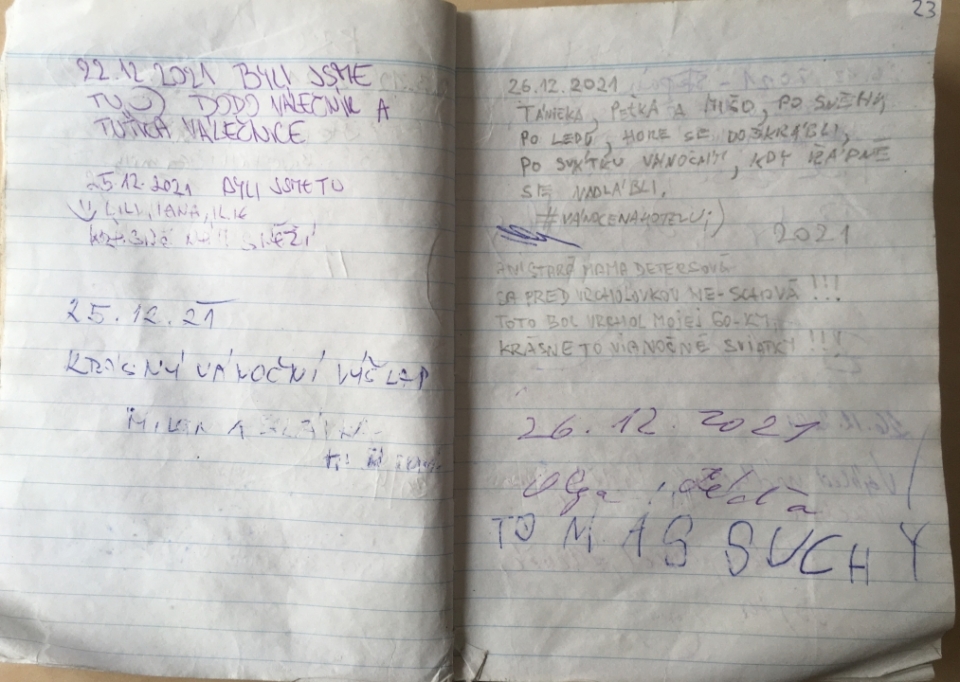 22.12.2021 BYLI JSME
TU DODO VÁLEČNIK A
TUTKA VÁLEČNICE
25.12.2021 BYLI JSME TU
LILI, IANA, ILIE
25.12.21
KRÁSNÝ VÁNOČNÍ VÝŠLAP
MILAN A
23
26.12.2021
TÁNIČKA, PEŤKA A MIŠO, PO SNĚHU,
PO LEDU, HORE SE DOŠKRÁBLI,
PO SVÁTKU VÁNOČNÍM, KDY ŘÁDNĚ
SE NADLÁBLI.
#VÁNOCENAHOTELU;)
2021
ANI STARÁ MAMA DETERSOVÁ
SA PRED VRCHOLOVKOU NE-SCHOVÁ !!!
TOTO BOL VRCHOL MOJEJ 60-KY.
KRÁSNE TO VIANOČNÉ SVIATKY !!!
26.12.2021
Olga i
TOMÁS SUCHY